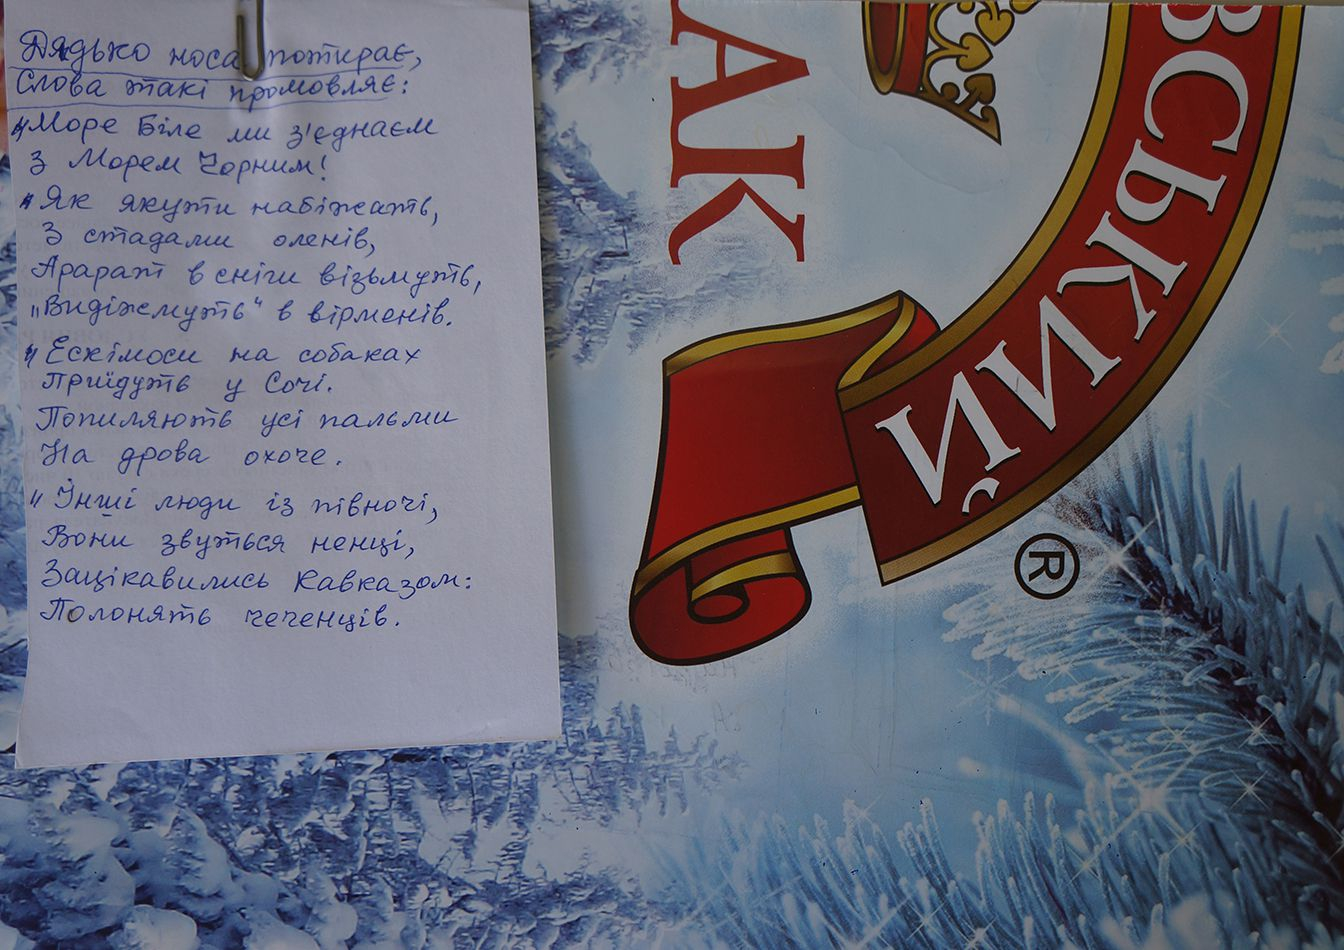 Дядько носа потирає,
Слова такі промовляє:
"Море Біле ми з'єднаєм
З Морем Чорним!
"Як якути набіжать,
З стадами оленів,
Арарат в сніги візьмуть,
„Видіжмуть" в вірменів.
"Ескімоси на собаках
Приїдуть у Сочі.
Попиляють усі пальми
На дрова охоче.
"Інші люди із півночі,
Вони звуться ненці,
Зацікавились Кавказом:
Полонять чеченців.
АК
ВСЬКИЙ
®